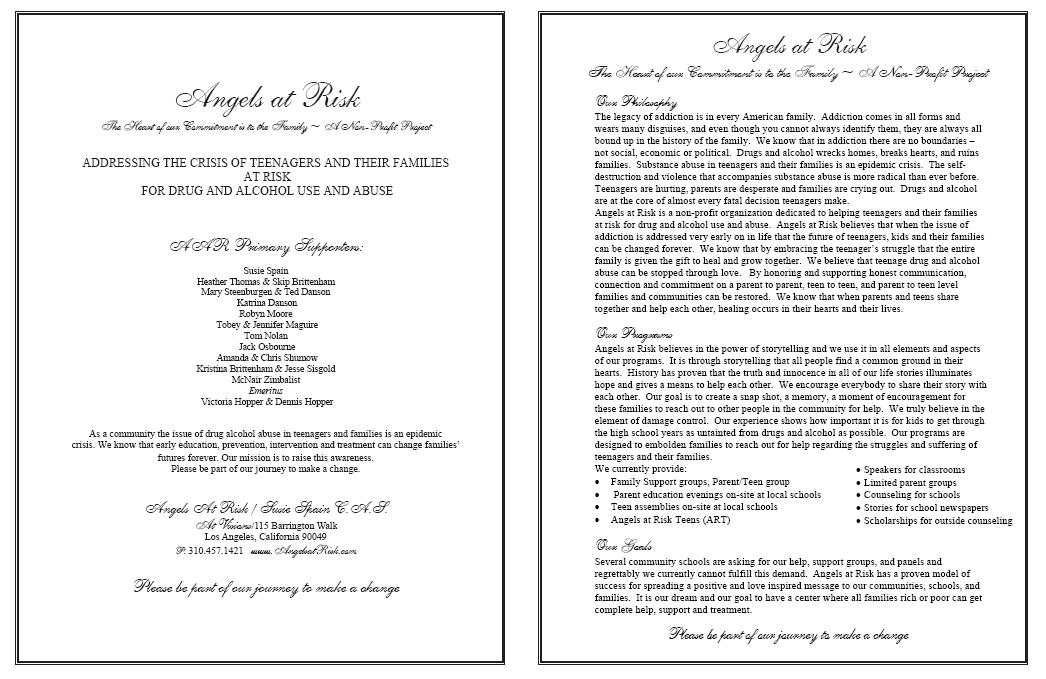 Angels at Risk
The Heart of our Commitment is to the Family ~ A Non-Profit Project
ADDRESSING THE CRISIS OF TEENAGERS AND THEIR FAMILIES
AT RISK
FOR DRUG AND ALCOHOL USE AND ABUSE
AAR Primary Supporters:
Susie Spain
Heather Thomas & Skip Brittenham
Mary Steenburgen & Ted Danson
Katrina Danson
Robyn Moore
Tobey & Jennifer Maguire
Tom Nolan
Jack Osbourne
Amanda & Chris Shumow
Kristina Brittenham & Jesse Sisgold
McNair Zimbalist
Emeritus
Victoria Hopper & Dennis Hopper
As a community the issue of drug alcohol abuse in teenagers and families is an epidemic
crisis. We know that early education, prevention, intervention and treatment can change families'
futures forever. Our mission is to raise this awareness.
Please be part of our journey to make a change.
Angels At Risk / Susie Spain C.A.S.
At Visions/115 Barrington Walk
Los Angeles, California 90049
P: 310.457.1421 www.AngelsatRisk.com
Please be part of our journey to make a change
Angels at Risk
The Heart of our Commitment is to the Family ~ A Non-Profit Project
Our Philosophy
The legacy of addiction is in every American family. Addiction comes in all forms and
wears many disguises, and even though you cannot always identify them, they are always all
bound up in the history of the family. We know that in addiction there are no boundaries –
not social, economic or political. Drugs and alcohol wrecks homes, breaks hearts, and ruins
families. Substance abuse in teenagers and their families is an epidemic crisis. The self-
destruction and violence that accompanies substance abuse is more radical than ever before.
Teenagers are hurting, parents are desperate and families are crying out. Drugs and alcohol
are at the core of almost every fatal decision teenagers make.
Angels at Risk is a non-profit organization dedicated to helping teenagers and their families
at risk for drug and alcohol use and abuse. Angels at Risk believes that when the issue of
addiction is addressed very early on in life that the future of teenagers, kids and their families
can be changed forever. We know that by embracing the teenager's struggle that the entire
family is given the gift to heal and grow together. We believe that teenage drug and alcohol
abuse can be stopped through love. By honoring and supporting honest communication,
connection and commitment on a parent to parent, teen to teen, and parent to teen level
families and communities can be restored. We know that when parents and teens share
together and help each other, healing occurs in their hearts and their lives.
Our Programs
Angels at Risk believes in the power of storytelling and we use it in all elements and aspects
of our programs. It is through storytelling that all people find a common ground in their
hearts. History has proven that the truth and innocence in all of our life stories illuminates
hope and gives a means to help each other. We encourage everybody to share their story with
each other. Our goal is to create a snap shot, a memory, a moment of encouragement for
these families to reach out to other people in the community for help. We truly believe in the
element of damage control. Our experience shows how important it is for kids to get through
the high school years as untainted from drugs and alcohol as possible. Our programs are
designed to embolden families to reach out for help regarding the struggles and suffering of
teenagers and their families.
We currently provide:
• Family Support groups, Parent/Teen group
• Parent education evenings on-site at local schools
• Teen assemblies on-site at local schools
• Angels at Risk Teens (ART)
• Speakers for classrooms
• Limited parent groups
• Counseling for schools
• Stories for school newspapers
• Scholarships for outside counseling
Our Goals
Several community schools are asking for our help, support groups, and panels and
regrettably we currently cannot fulfill this demand. Angels at Risk has a proven model of
success for spreading a positive and love inspired message to our communities, schools, and
families. It is our dream and our goal to have a center where all families rich or poor can get
complete help, support and treatment.
Please be part of our journey to make a change